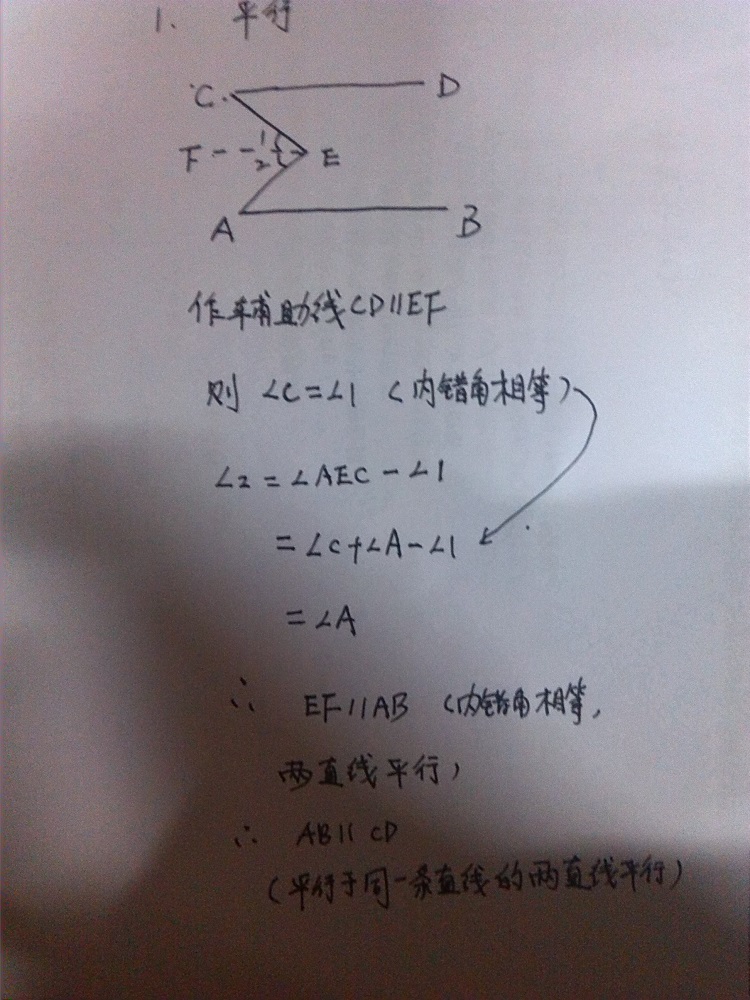 1. 平行
C. D
F 1 2 E
A B
作辅助线CD∥EF
则 ∠C=∠1 (内错角相等)
∠2=∠AEC-∠1
=∠C+∠A-∠1
=∠A
∴ EF∥AB (内错角相等,
两直线平行)
∴ AB∥CD
(平行于同一条直线的两直线平行)